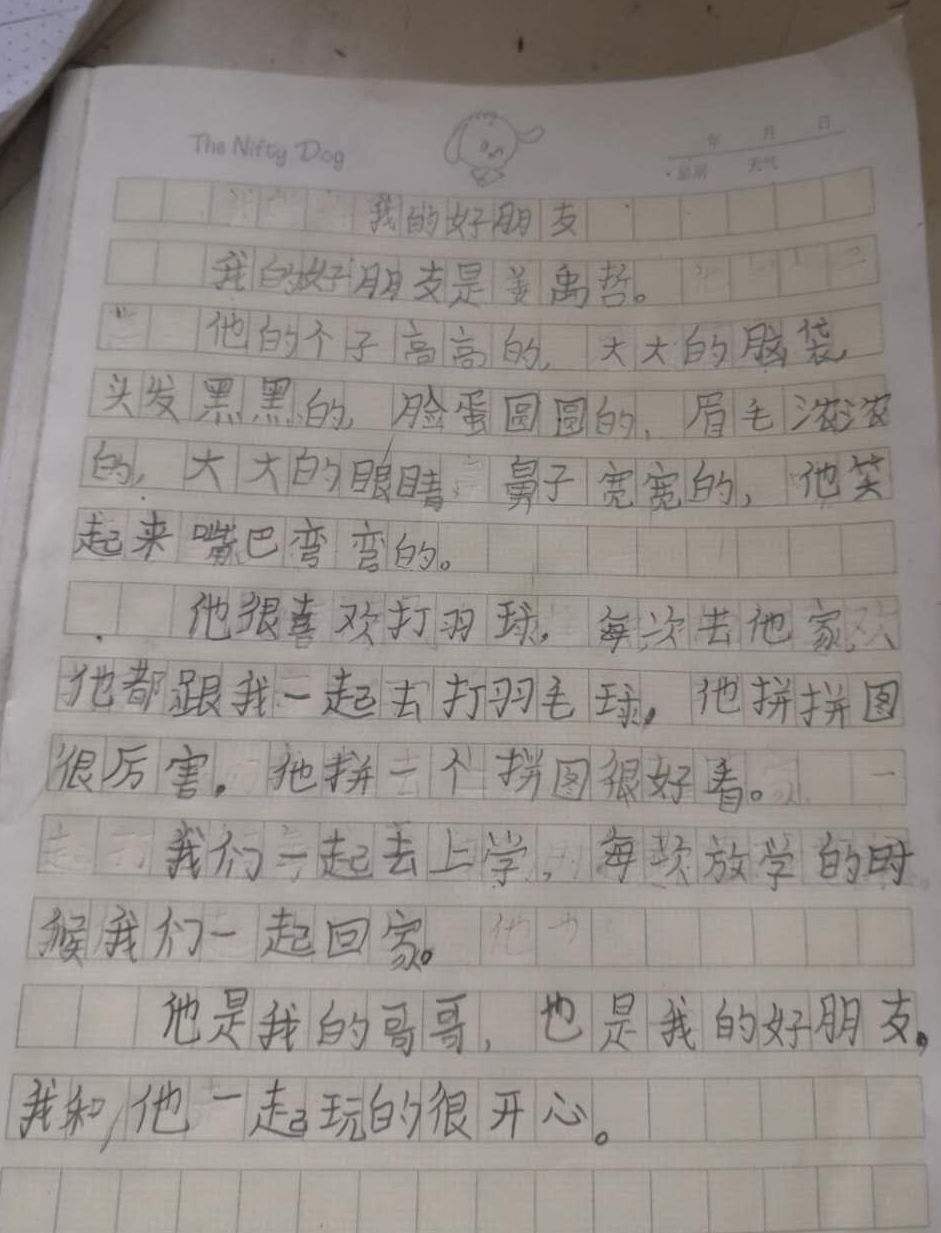 The Nifty Dog
年 月 日
星期 天气
我的好朋友
我的好朋友是姜禹哲。
他的个子高高的,大大的脑袋,
头发黑黑的,脸蛋圆圆的,眉毛浓浓
的,大大的眼睛 鼻子宽宽的,他笑
起来嘴巴弯弯的。
他很喜欢打羽球,每次去他家
他都跟我一起去打羽毛球,他拼拼图
很厉害。他拼一个拼图很好看。
我们一起去上学,每次放学的时
候我们一起回家。
他是我的哥哥,也是我的好朋友,
我和他一起玩的很开心。